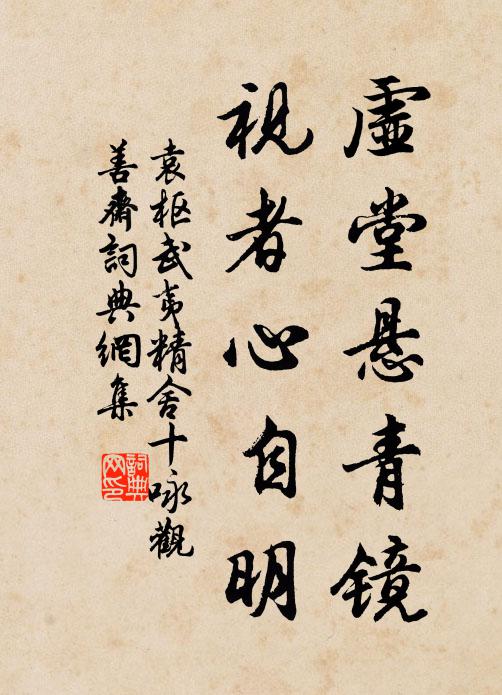 虚堂悬青镜
视者心自明
袁枢武夷精舍十咏观
善斋词典網集
詞典網印